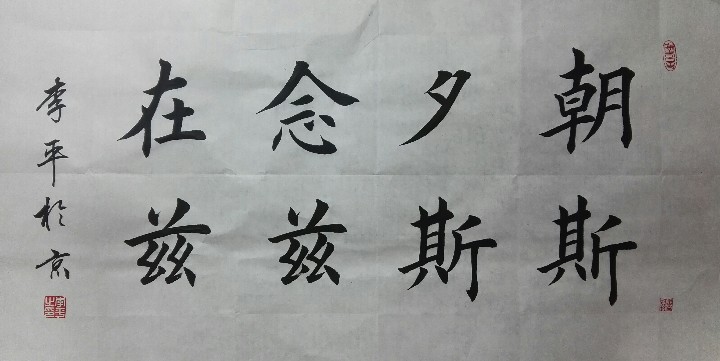 朝斯
夕斯
念兹
在兹
李平於京